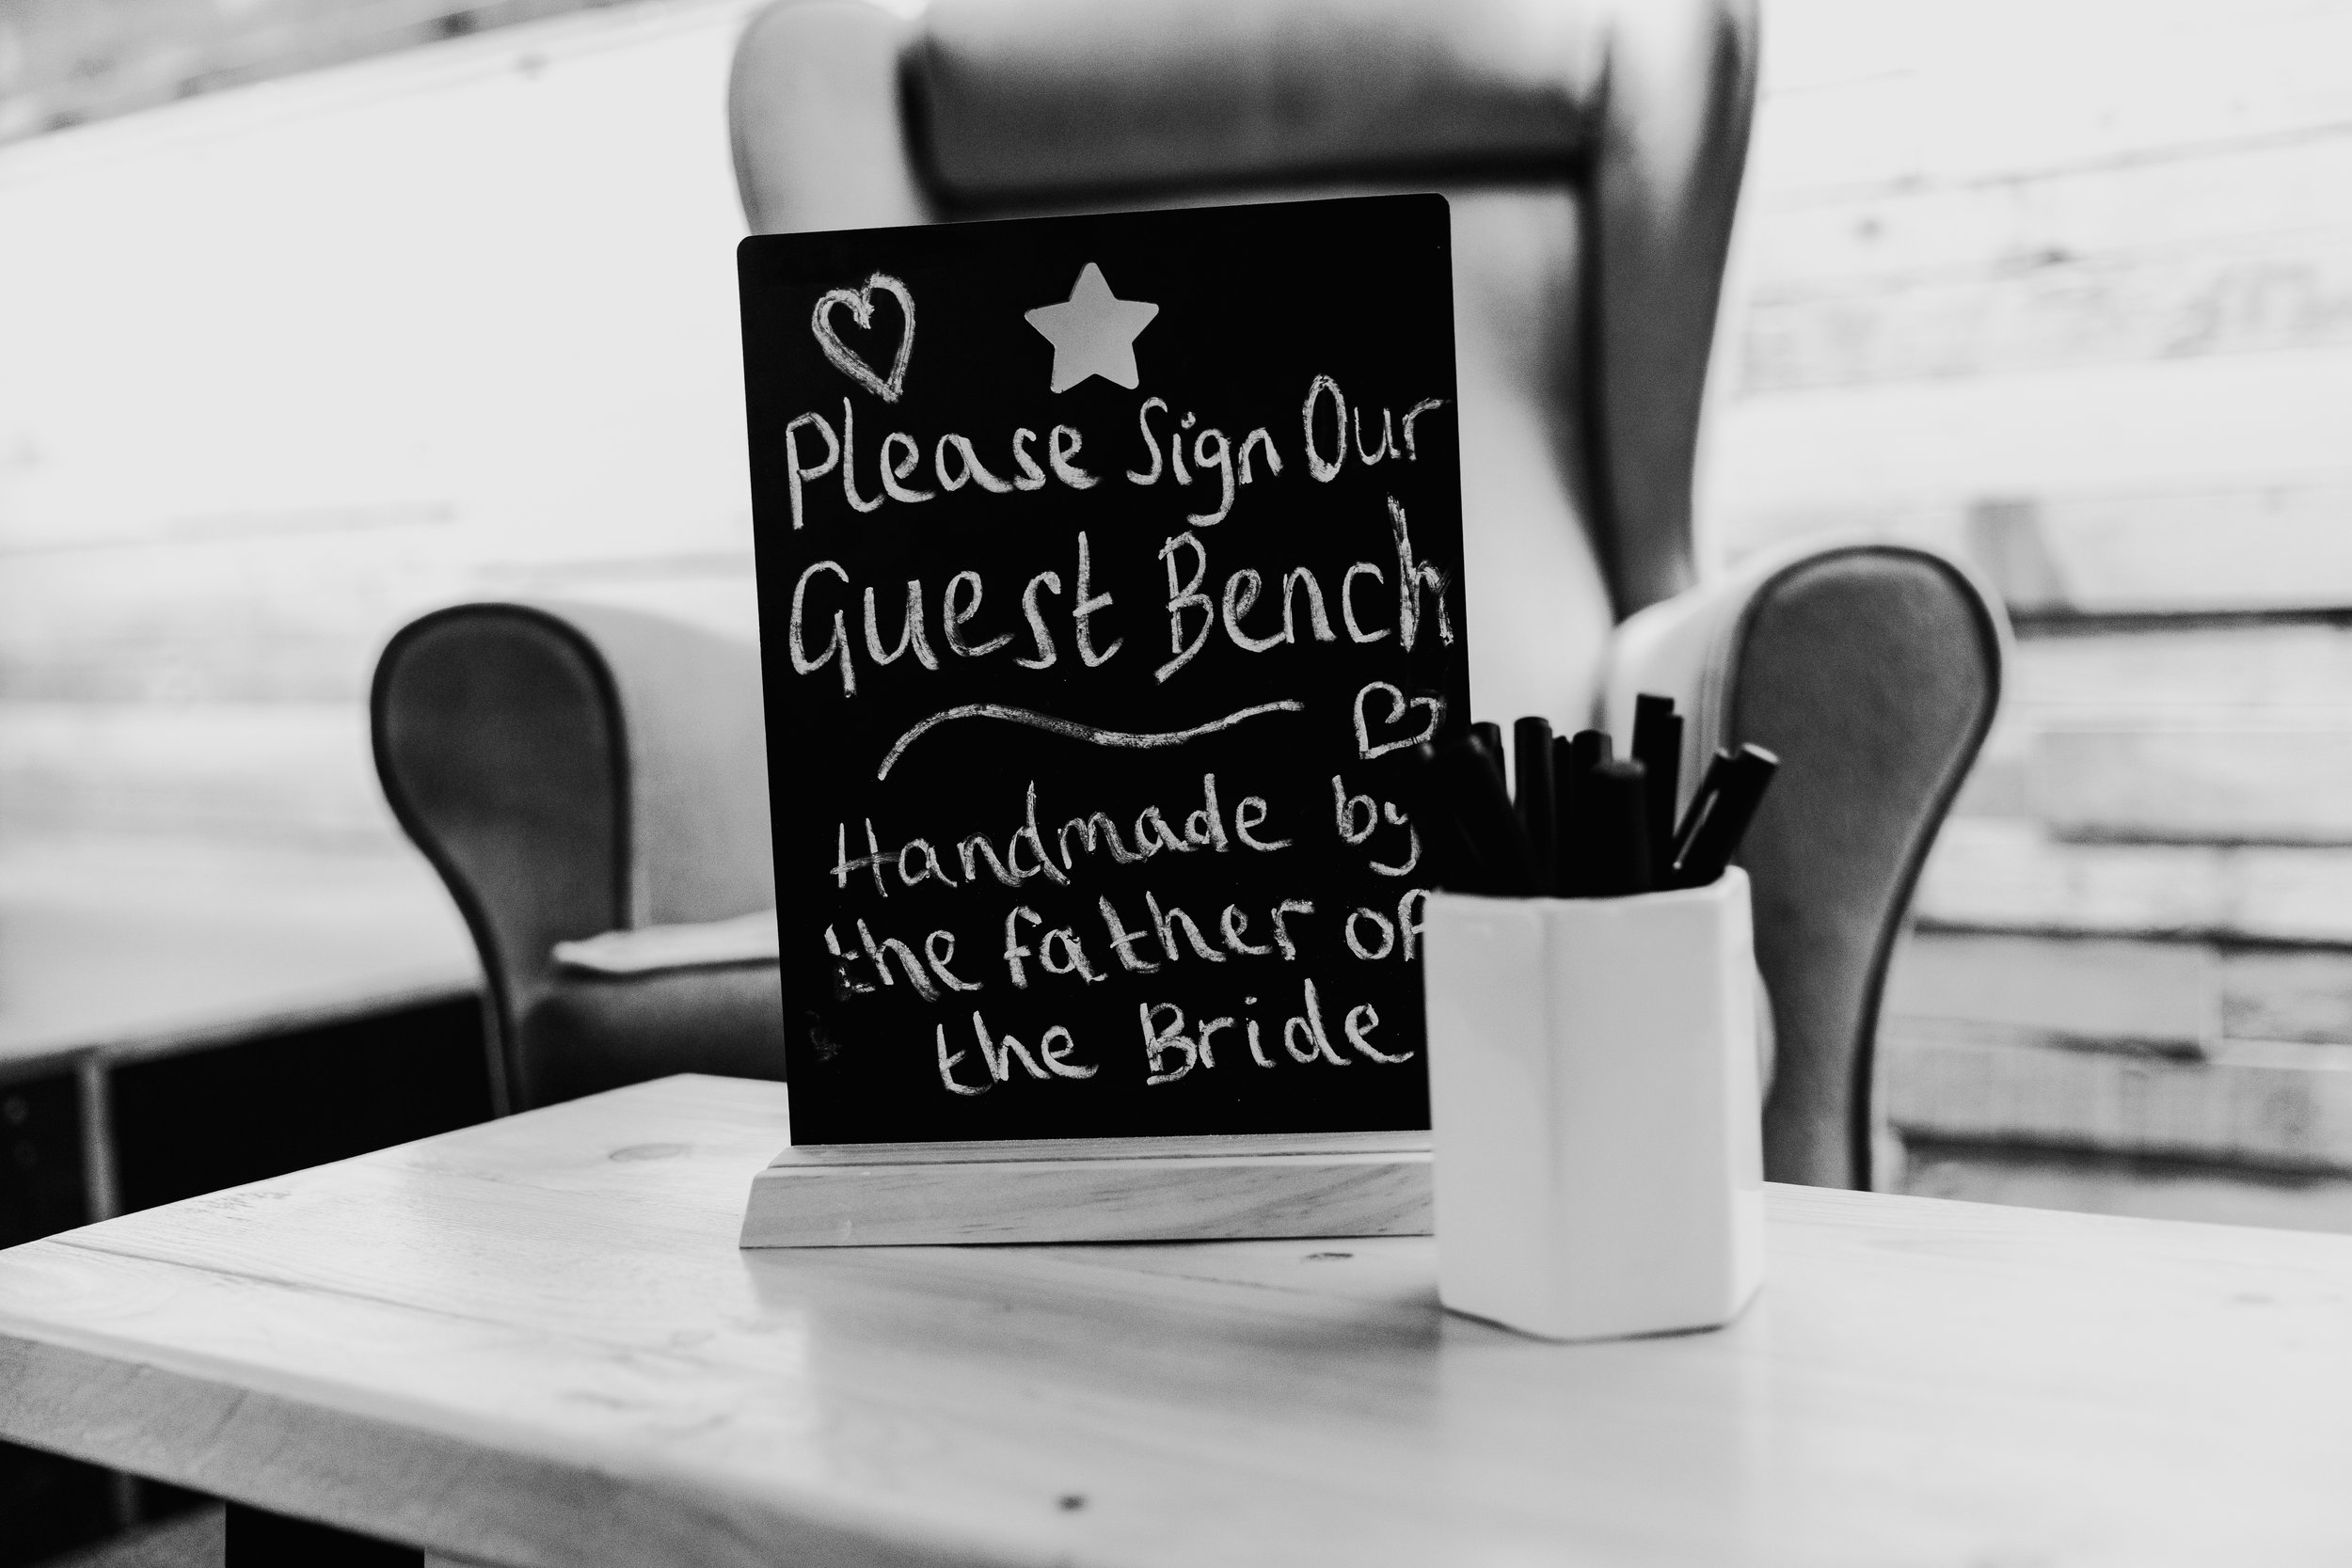 Please Sign Our
Guest Bench
Handmade by
the father of
the Bride